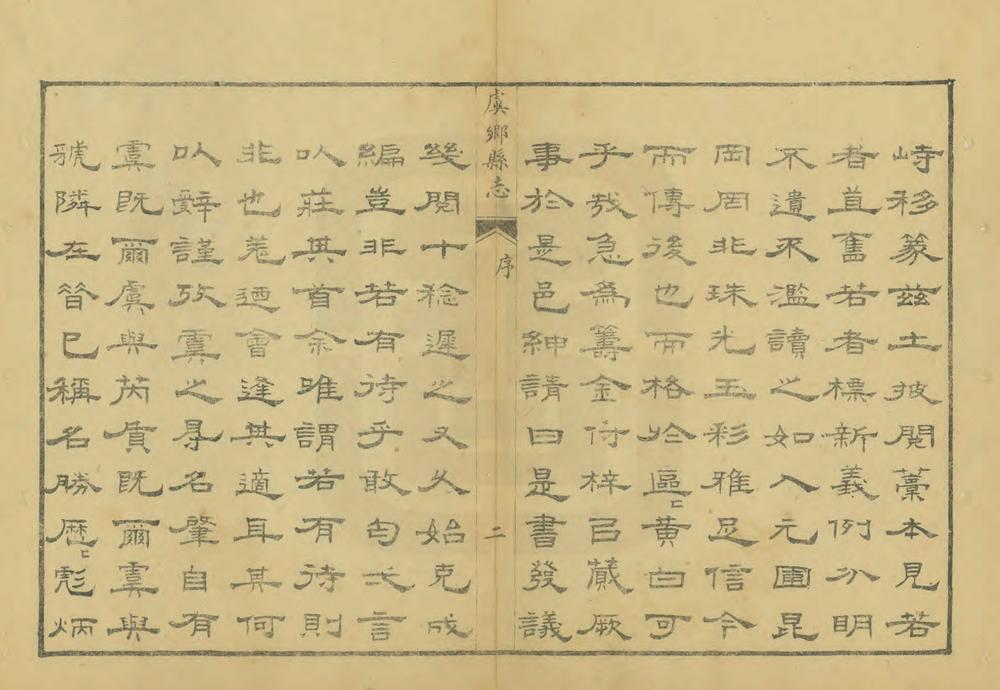 峙移篆茲土披閱藁本見若
者直舊若者標新義例分明
不遺不濫讀之如入元圃昆
岡罔非珠光玉彩雅足信今
而傳後也而格於區〻黃白可
乎哉急為籌金付梓召蕆厥
事於是邑紳請曰是書發議
虞鄉縣志
序
二
幾閱十稔遲之又久始克成
編豈非若有待乎敢匄弌言
以莊其首余唯謂若有待則
非也蓋迺會逢其適耳其何
以辭謹攷虞之得名肇自有
虞既爾虞與芮質既爾虞與
虢隣在昝已稱名勝歷〻彪炳